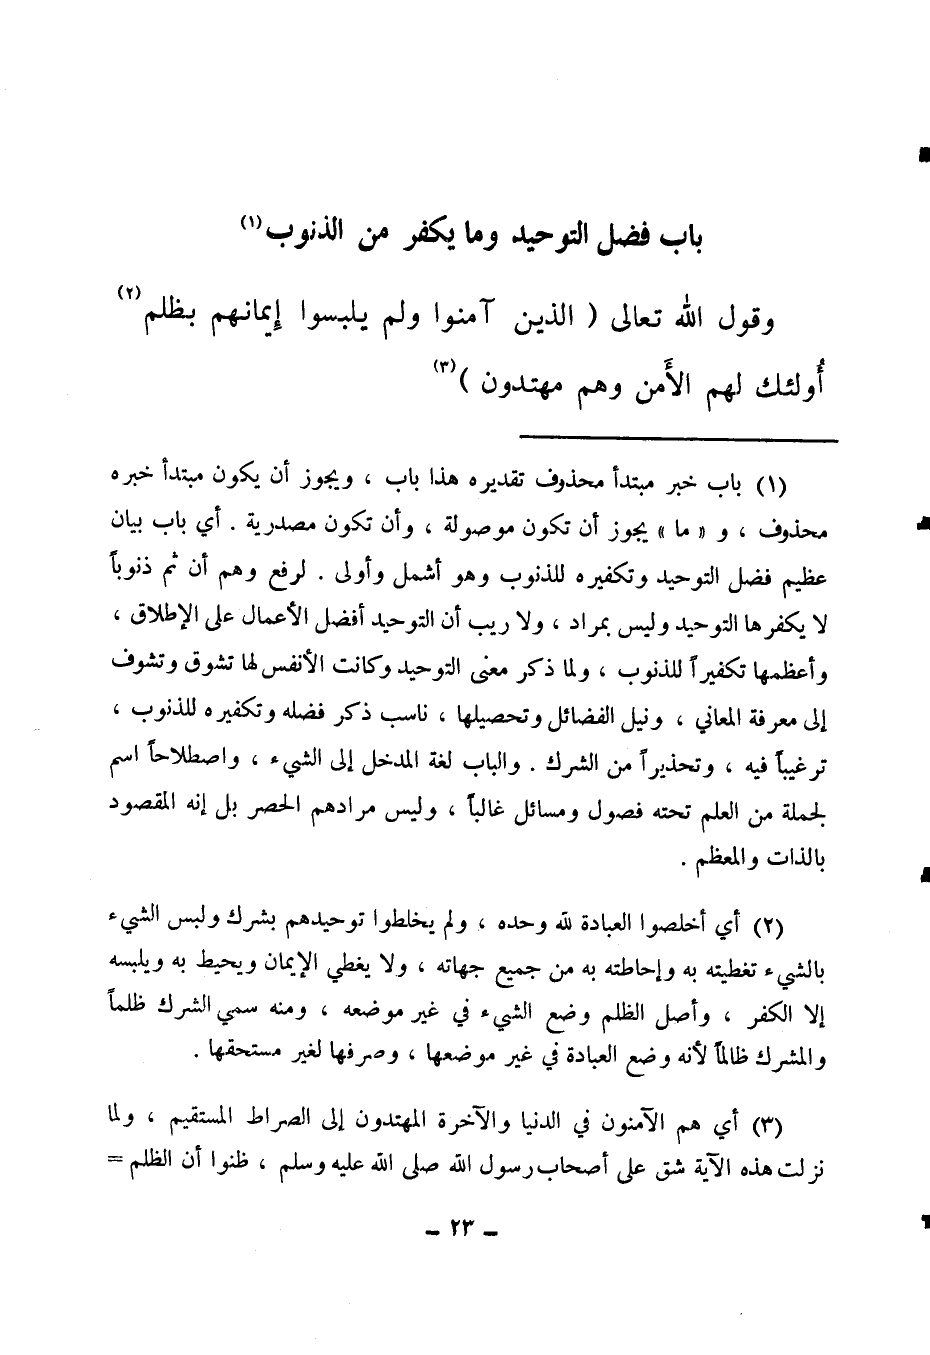 باب فضل التوحيد وما يكفر من الذنوب(١)
وقول الله تعالى ( الذين آمنوا ولم يلبسوا إيمانهم بظلم(٢)
أُولئك لهم الأَمن وهم مهتدون )(٣)
(١) باب خبر مبتدأ محذوف تقديره هذا باب ، ويجوز أن يكون مبتدأ خبره
محذوف ، و « ما » يجوز أن تكون موصولة ، وأن تكون مصدرية . أي باب بيان
عظيم فضل التوحيد وتكفيره للذنوب وهو أشمل وأولى . لرفع وهم أن ثم ذنوباً
لا يكفرها التوحيد وليس بمراد ، ولا ريب أن التوحيد أفضل الأعمال على الإطلاق ،
وأعظمها تكفيراً للذنوب ، ولما ذكر معنى التوحيد وكانت الأنفس لها تشوق وتشوف
إلى معرفة المعاني ، ونيل الفضائل وتحصيلها ، ناسب ذكر فضله وتكفيره للذنوب ،
ترغيباً فيه ، وتحذيراً من الشرك . والباب لغة المدخل إلى الشيء ، واصطلاحاً اسم
لجملة من العلم تحته فصول ومسائل غالباً ، وليس مرادهم الحصر بل إنه المقصود
بالذات والمعظم .
(٢) أي أخلصوا العبادة لله وحده ، ولم يخلطوا توحيدهم بشرك ولبس الشيء
بالشيء تغطيته به وإحاطته به من جميع جهاته ، ولا يغطي الإيمان ويحيط به ويلبسه
إلا الكفر ، وأصل الظلم وضع الشيء في غير موضعه ، ومنه سمي الشرك ظلماً
والمشرك ظالماً لأنه وضع العبادة في غير موضعها ، وصرفها لغير مستحقها .
(٣) أي هم الآمنون في الدنيا والآخرة المهتدون إلى الصراط المستقيم ، ولما
نزلت هذه الآية شق على أصحاب رسول الله صلى الله عليه وسلم ، ظنوا أن الظلم =
– ٢٣ –